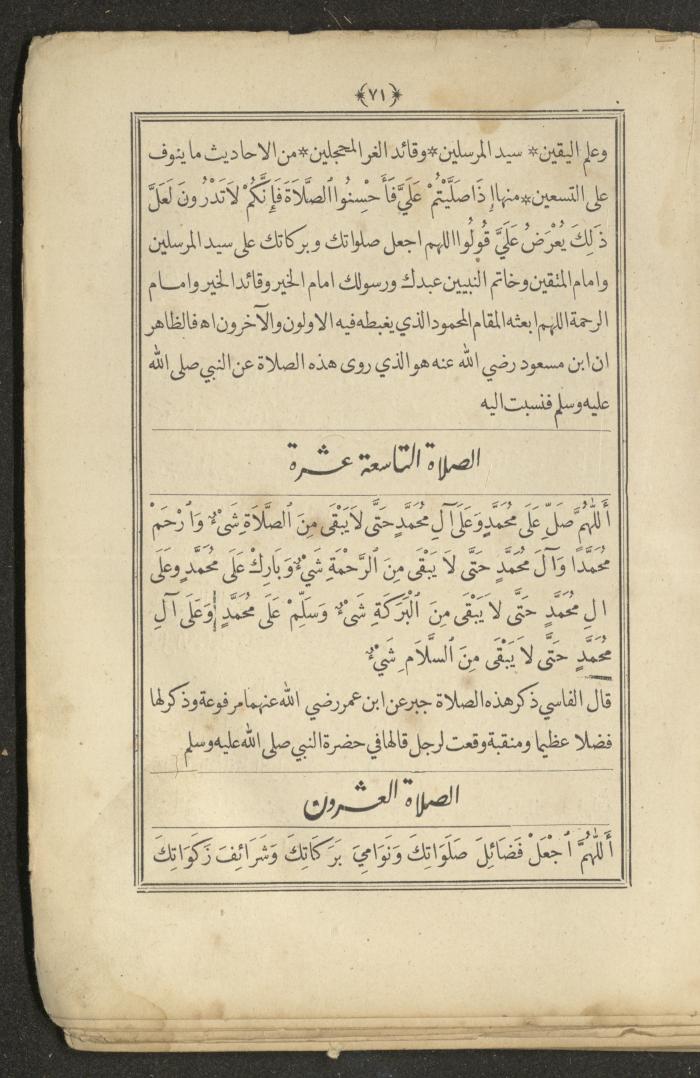 ﴿٧١﴾
وعلم اليقين* سيد المرسلين*وقائد الغر المحجلين*من الاحاديث ما ينوف
على التسعين*منها إِذَا صَلَّيْتُمْ عَلَيَّ فَأَحْسِنُوا ٱلصَّلَاةَ فَإِنَّكُمْ لَا تَدْرُونَ لَعَلَّ
ذٰلِكَ يُعْرَضُ عَلَيَّ قُولُوا اللهم اجعل صلواتك وبركاتك على سيد المرسلين
وامام المتقين وخاتم النبيين عبدك ورسولك امام الخير وقائد الخير وامام
الرحمة اللهم ابعثه المقام المحمود الذي يغبطه فيه الاولون والآخرون اه فالظاهر
ان ابن مسعود رضي الله عنه هو الذي روى هذه الصلاة عن النبي صلى الله
عليه وسلم فنسبت اليه
الصلاة التاسعة عشرة
أَللّٰهُمَّ صَلِّ عَلَى مُحَمَّدٍ وَعَلَى آلِ مُحَمَّدٍ حَتَّى لَا يَبْقَى مِنَ ٱلصَّلَاةِ شَيْءٌ وَٱرْحَمْ
مُحَمَّدًا وَآلَ مُحَمَّدٍ حَتَّى لَا يَبْقَى مِنَ ٱلرَّحْمَةِ شَيْءٌ وَبَارِكْ عَلَى مُحَمَّدٍ وعَلَى
الِ مُحَمَّدٍ حَتَّى لَا يَبْقَى مِنَ ٱلْبَرَكَةِ شَيْءٌ وَسَلِّمْ عَلَى مُحَمَّدٍ وَعَلَى آلِ
مُحَمَّدٍ حَتَّى لَا يَبْقَى مِنَ ٱلسَّلَامِ شَيْءٌ
قال الفاسي ذكر هذه الصلاة جبر عن ابن عمر رضي الله عنهما مرفوعة وذكر لها
فضلا عظيما ومنقبة وقعت لرجل قالها في حضرة النبي صلى الله عليه وسلم
الصلاة العشرون
أَللّٰهُمَّ ٱجْعَلْ فَضَائِلَ صَلَوَاتِكَ وَنَوَامِيَ بَرَكَاتِكَ وَشَرَائِفَ زَكَوَاتِكَ